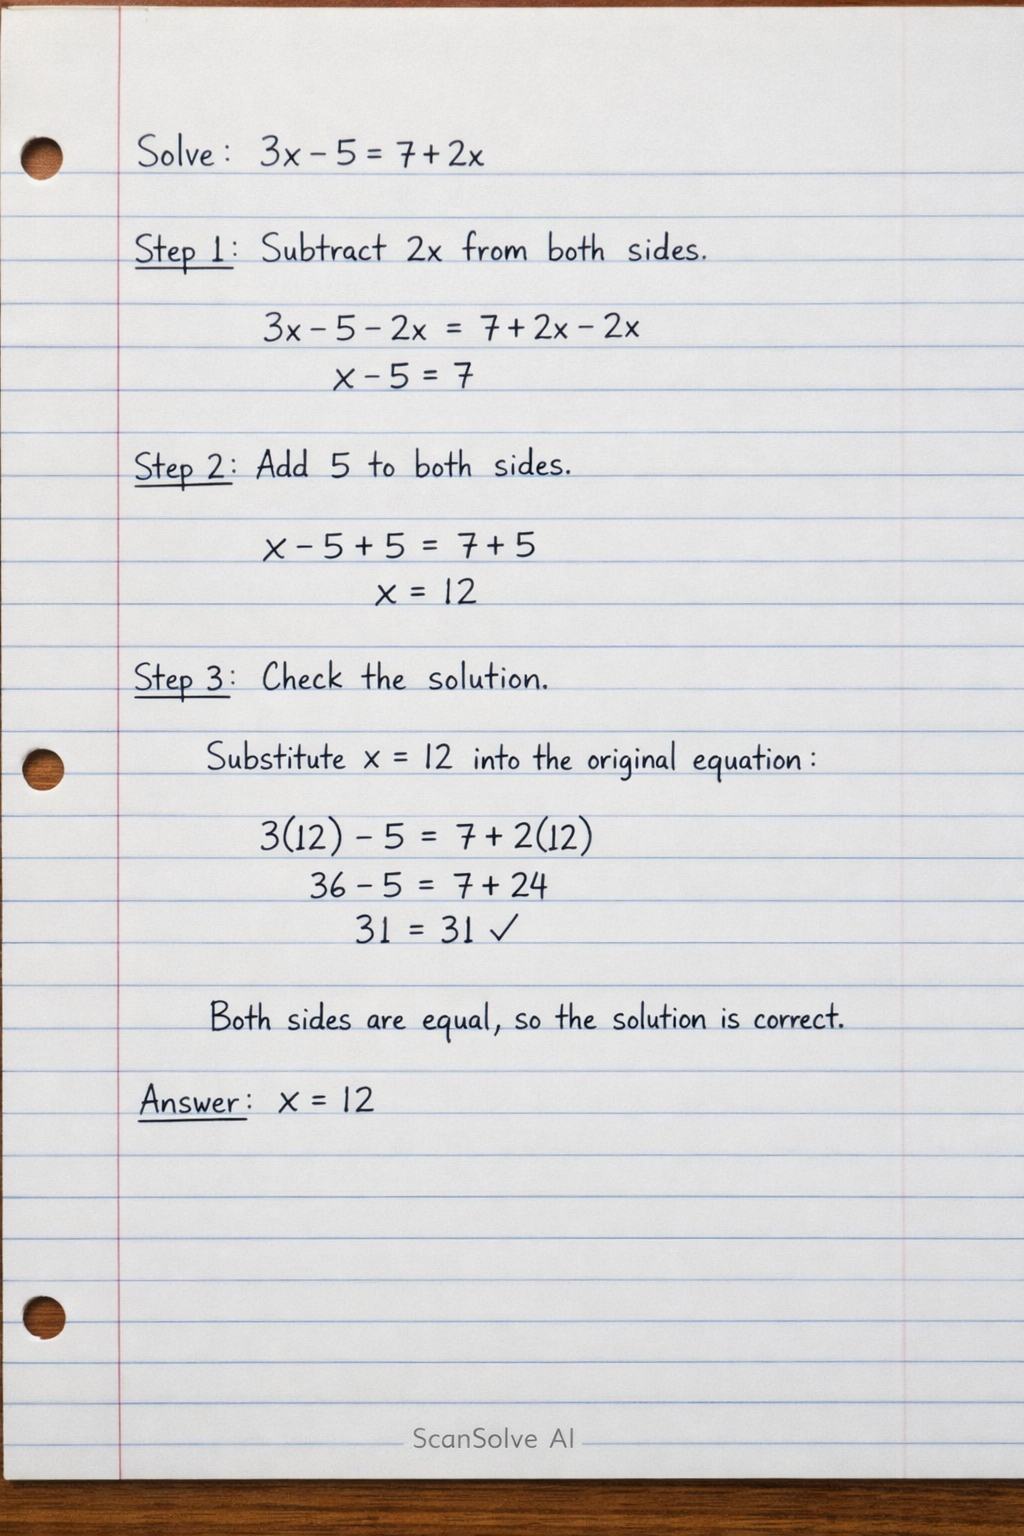 Solve: 3x - 5 = 7 + 2x
Step 1: Subtract 2x from both sides.
3x - 5 - 2x = 7 + 2x - 2x
x - 5 = 7
Step 2: Add 5 to both sides.
x - 5 + 5 = 7 + 5
x = 12
Step 3: Check the solution.
Substitute x = 12 into the original equation:
3(12) - 5 = 7 + 2(12)
36 - 5 = 7 + 24
31 = 31 ✓
Both sides are equal, so the solution is correct.
Answer: x = 12
ScanSolve AI